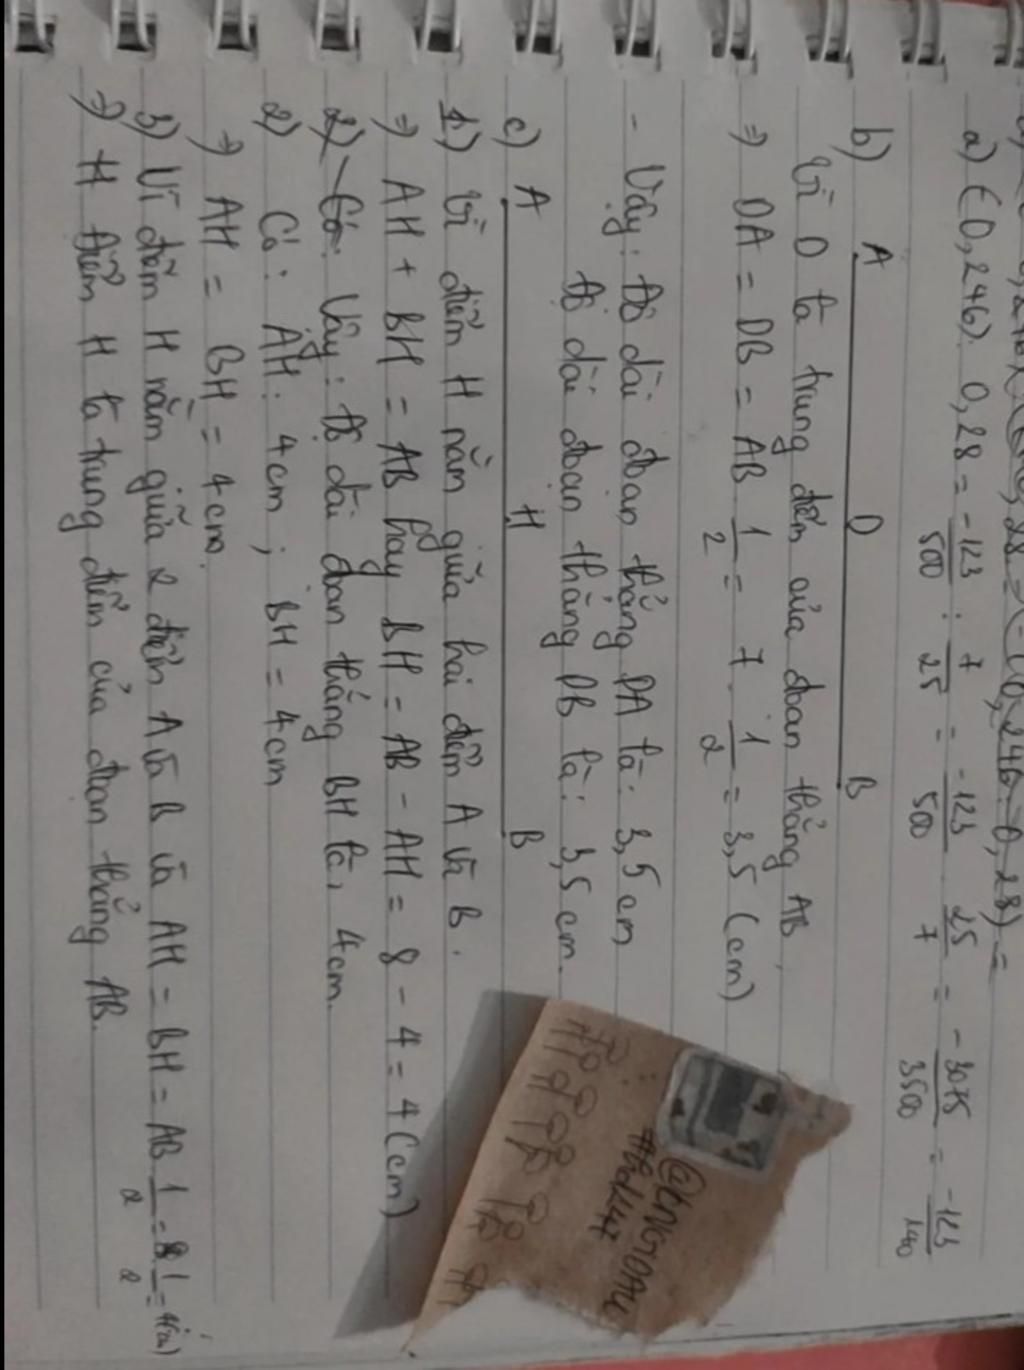 a) (-0,246) : 0,28 = -123/500 : 7/25 = -123/500 . 25/7 = -3075/3500 = -123/140
b)
A O B
Vì O là trung điểm của đoạn thẳng AB.
⇒ OA = OB = AB . 1/2 = 7 . 1/2 = 3,5 (cm)
- Vậy: Độ dài đoạn thẳng OA là: 3,5 cm
Độ dài đoạn thẳng OB là: 3,5 cm.
c)
A H B
1) Vì điểm H nằm giữa hai điểm A và B.
⇒ AH + BH = AB hay BH = AB - AH = 8 - 4 = 4 (cm)
Vậy: độ dài đoạn thẳng BH là: 4cm.
2) Có: AH: 4cm; BH = 4cm
⇒ AH = BH = 4cm.
3) Vì điểm H nằm giữa 2 điểm A và B và AH = BH = AB 1/2 = 8 . 1/2 = 4(cm)
⇒ H điểm H là trung điểm của đoạn thẳng AB.